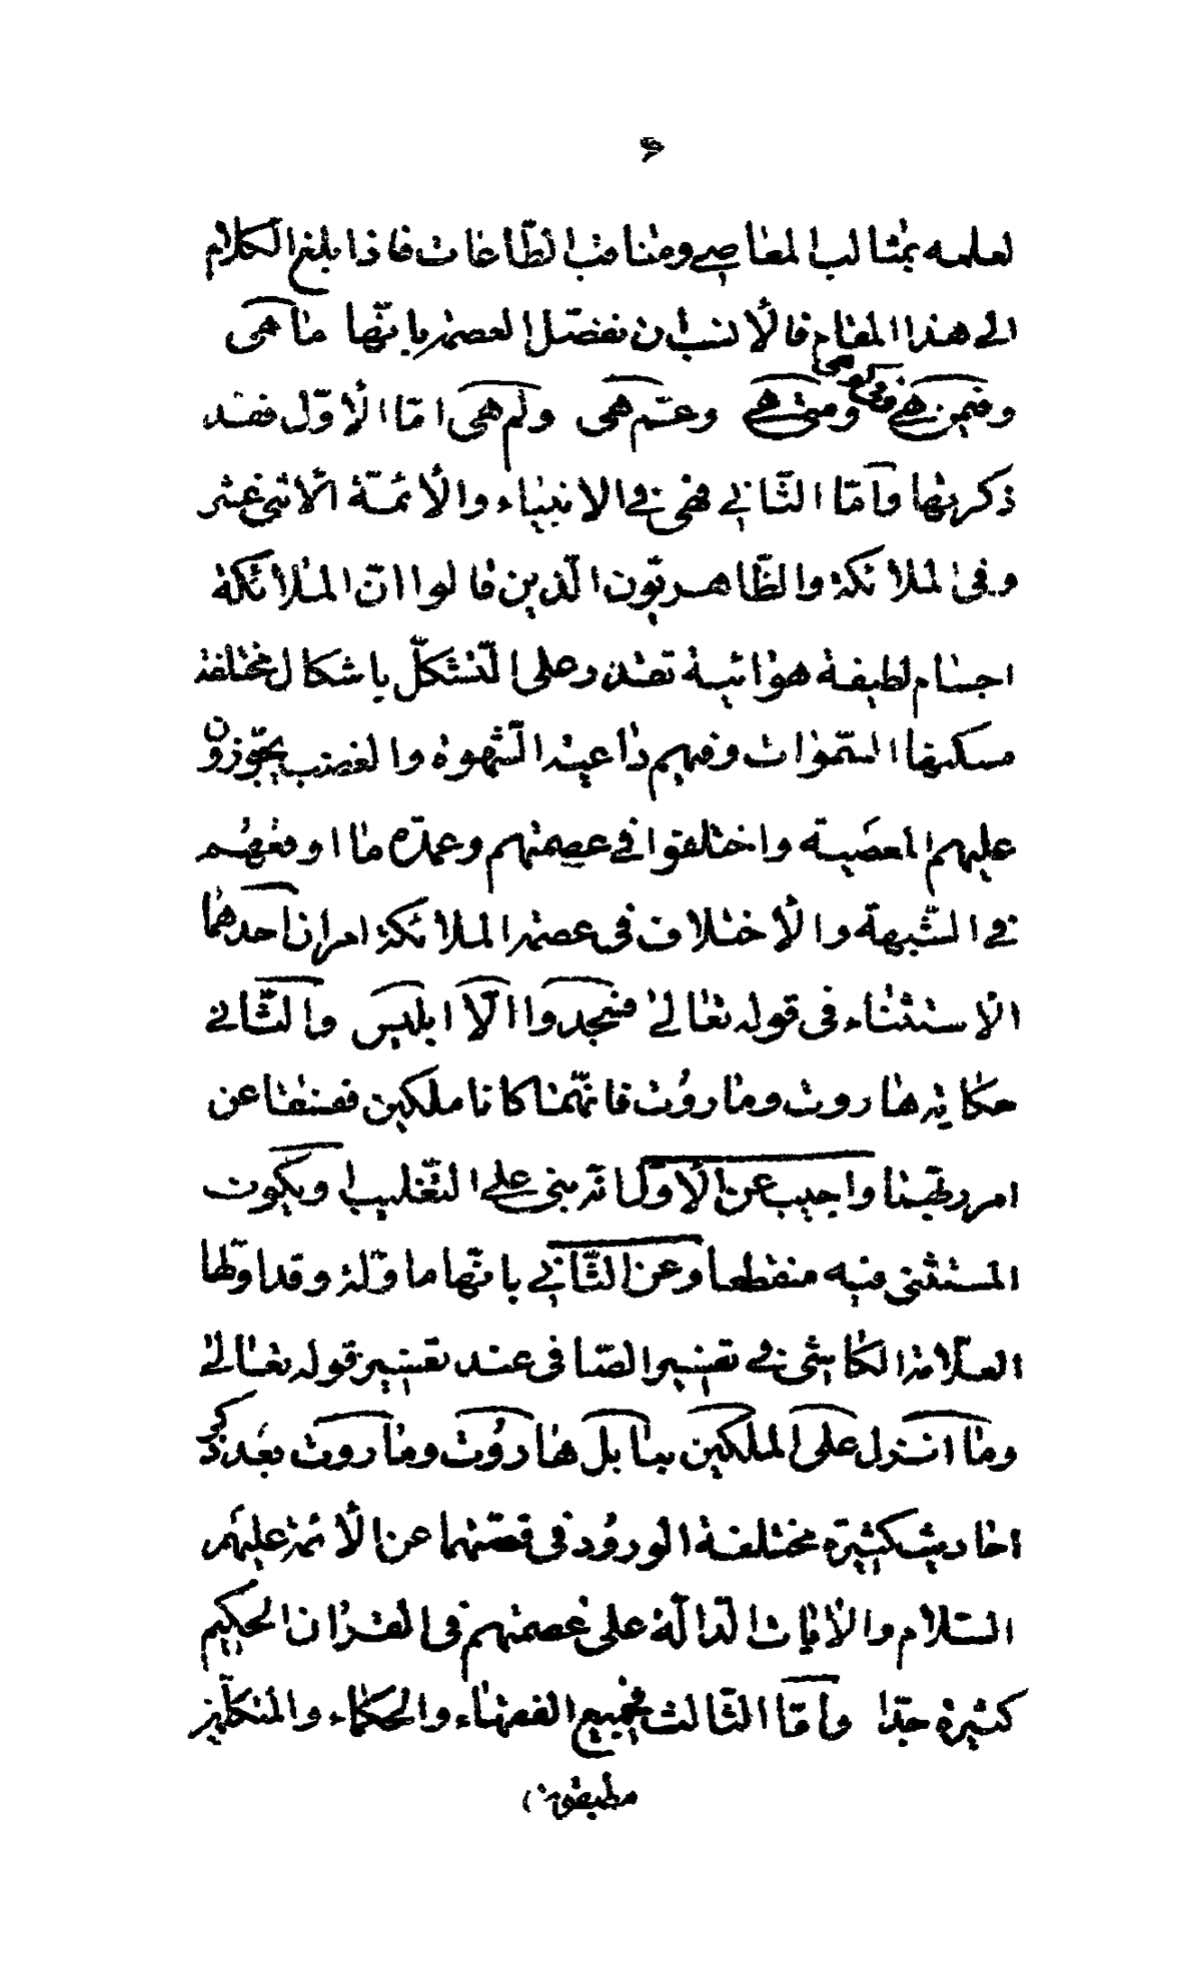 ۶
لعلمه بمثالب المعاصي ومناقب الطّاعات فاذا بلغ الكلام
الى هذا المقام فالأنسب ان نفصّل العصمة بانّها ما هى
وفيمن هي وفى اى شئ هى ومتى هي وعمّ هى ولم هى امّا الأوّل فقد
ذكرتها وامّا الثّاني فهى في الانبياء والأئمّة الأثنى عشر
وفى الملائكة والظّاهريّون الّذين قالوا انّ الملائكة
اجسام لطيفة هوائية تقدر على التّشكّل باشكال مختلفة
مسكنها السّموات وفيهم داعية الشّهوة والغضب يجوّزون
عليهم المعصية واختلفوا في عصمتهم وعمدة ما اوقعهم
في الشّبهة والأختلاف فى عصمة الملائكة امران احدهما
الأستثناء فى قوله تعالى فسجدوا الّا ابليس والثّاني
حكاية هاروت وماروت فانّهما كانا ملكين فعنفا عن
امر ربّهما واجيب عن الأوّل بانّه مبنى على التّغليب او يكون
المستثنى فيه منقطعا وعن الثّاني بانّها ماوّلة وقد اوّلها
العلّامة الكاشى في تفسير الصّافى عند تفسير قوله تعالى
وما انزل على الملكين ببابل هاروت وماروت بعد ذكر
احاديث كثيرة مختلفة الورود فى قصّتهما عن الأئمة عليهم
السّلام والأيات الدّالّة على عصمتهم فى القرأن الحكيم
كثيرة جدّا وامّا الثّالث فجميع الفقهاء والحكماء والمتكلّمين
مطبقون